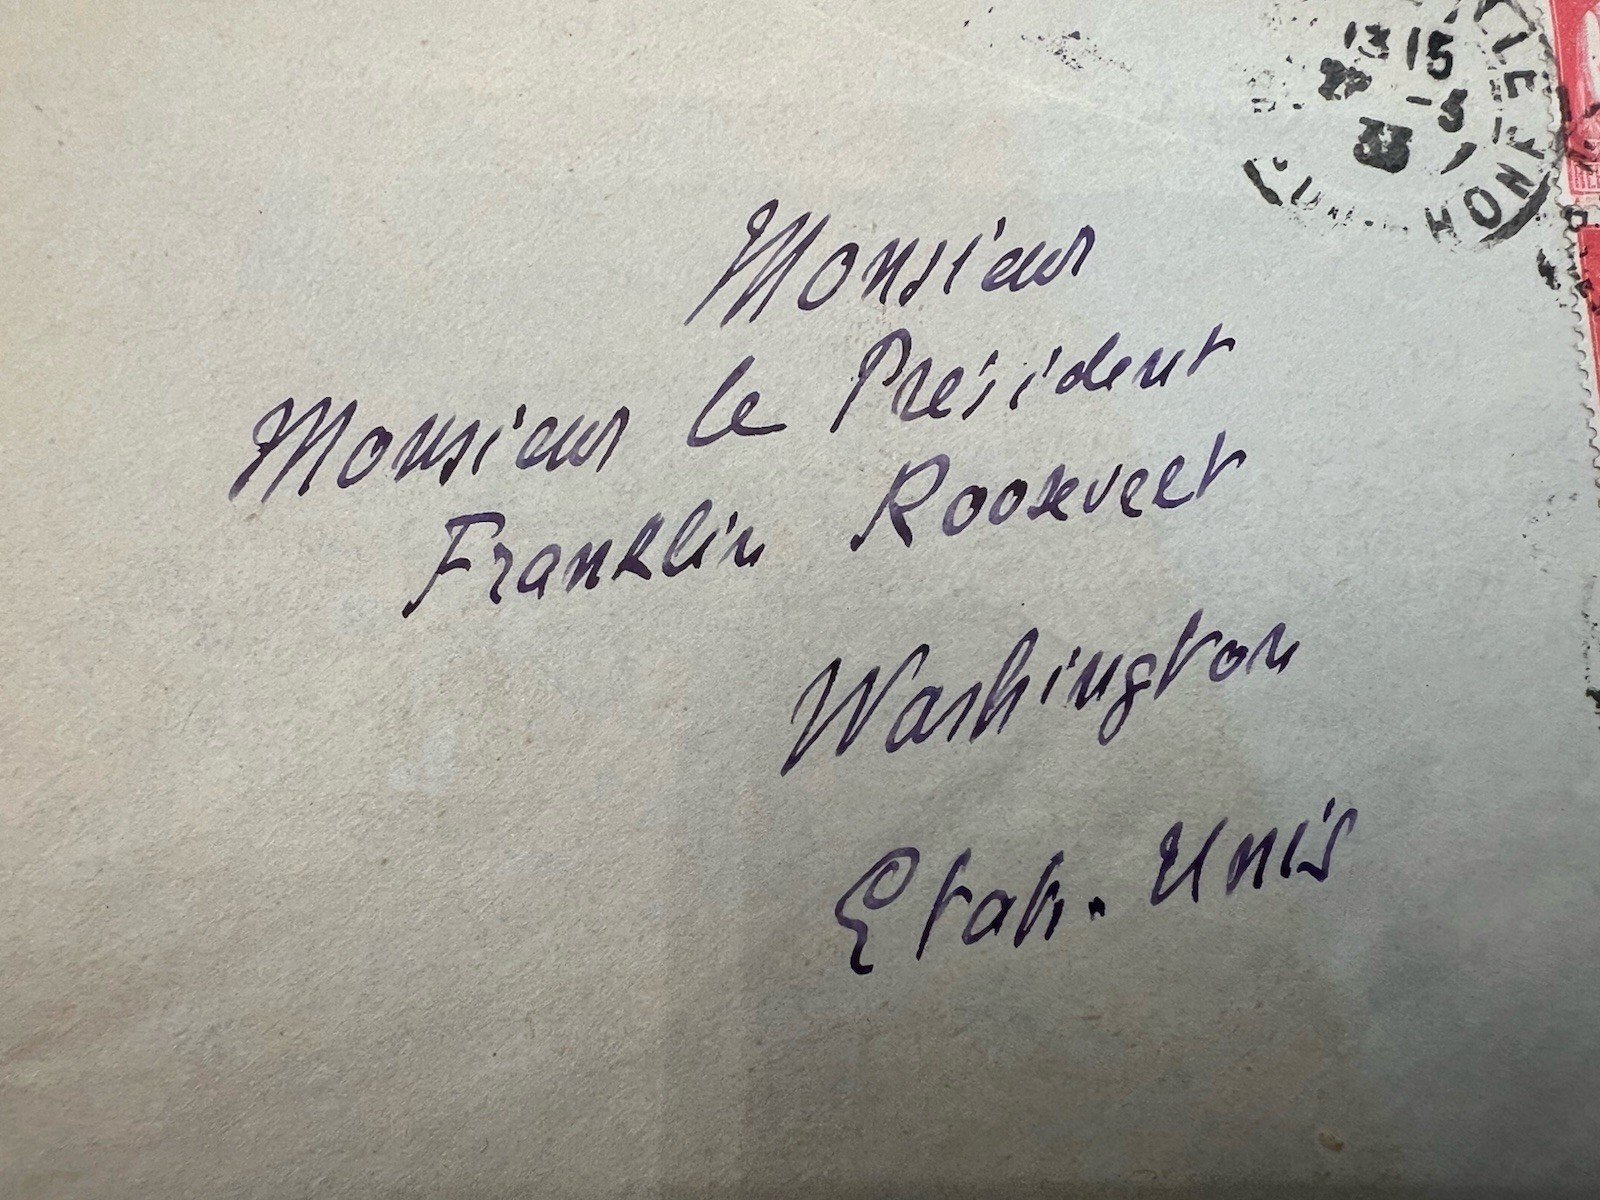 13 15
-5
33
Monsieur
Monsieur le Président
Franklin Roosevelt
Washington
Etats-Unis